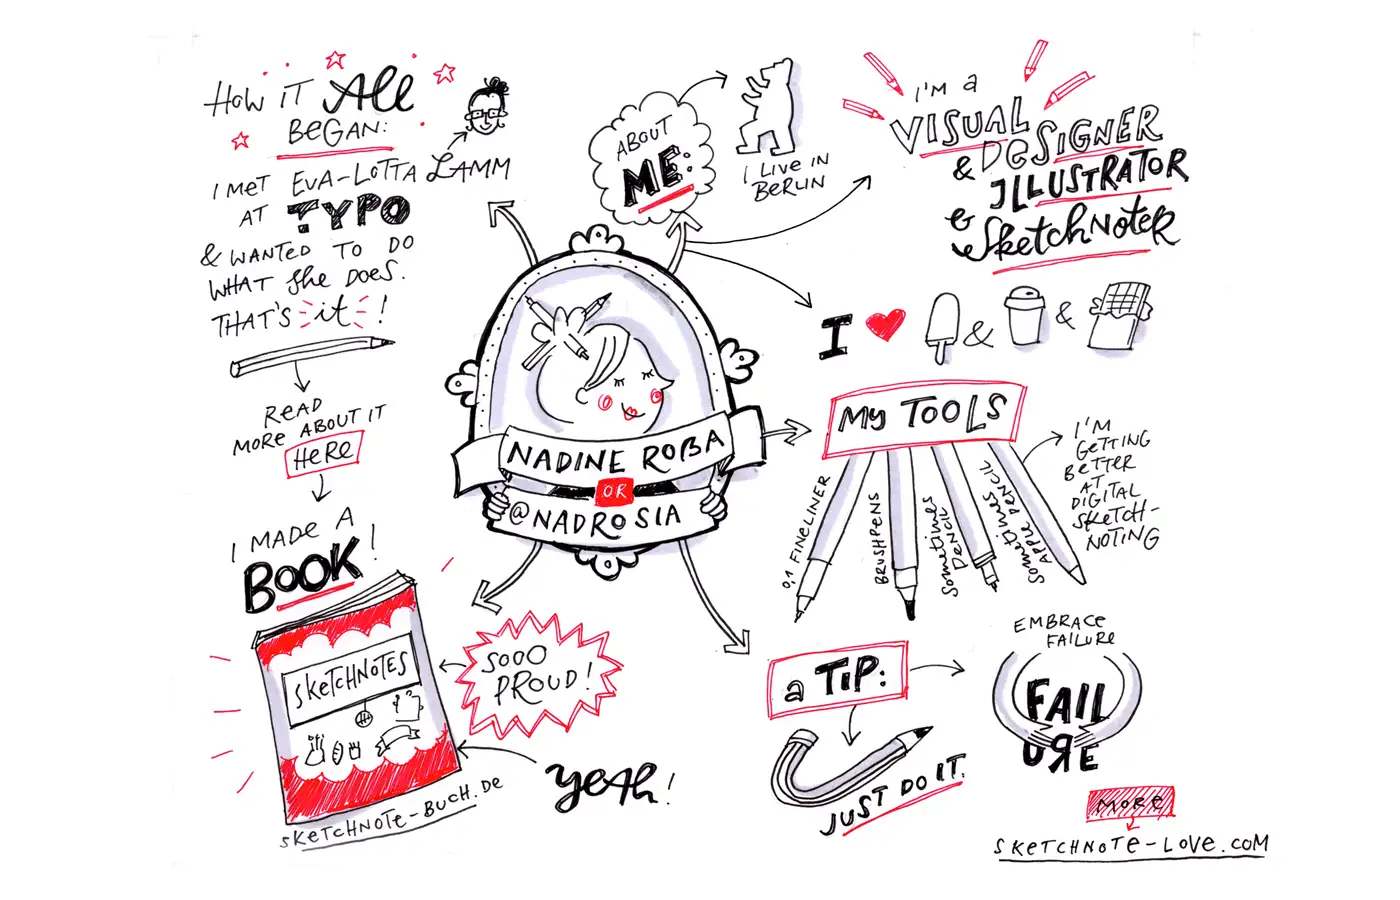 HOW IT All
BEGAN:
I MET EVA-LOTTA LAMM
AT TYPO
& WANTED TO DO
WHAT she DOES.
THAT'S it!
READ
MORE ABOUT IT
HERE
I MADE A
BOOK!
SKETCHNOTES
SKETCHNOTE-BUCH.DE
SOOO
PROUD!
yeah!
ABOUT
ME:
I LIVE IN
BERLIN
I'M a
VISUAL
& DESIGNER
ILLUSTRATOR
& SketchNoteR
I ♥ & &
NADINE ROßA
OR
@NADROSIA
My TOOLS
0,1 FINELINER
BRUSHPENS
Sometimes
PENCIL
Sometimes
APPLE PENCIL
I'M
GETTING
BETTER
AT
DIGITAL
SKETCH-
NOTING
a TIP:
JUST DO IT.
EMBRACE
FAILURE
FAIL
URE
MORE
SKETCHNOTE-LOVE.COM